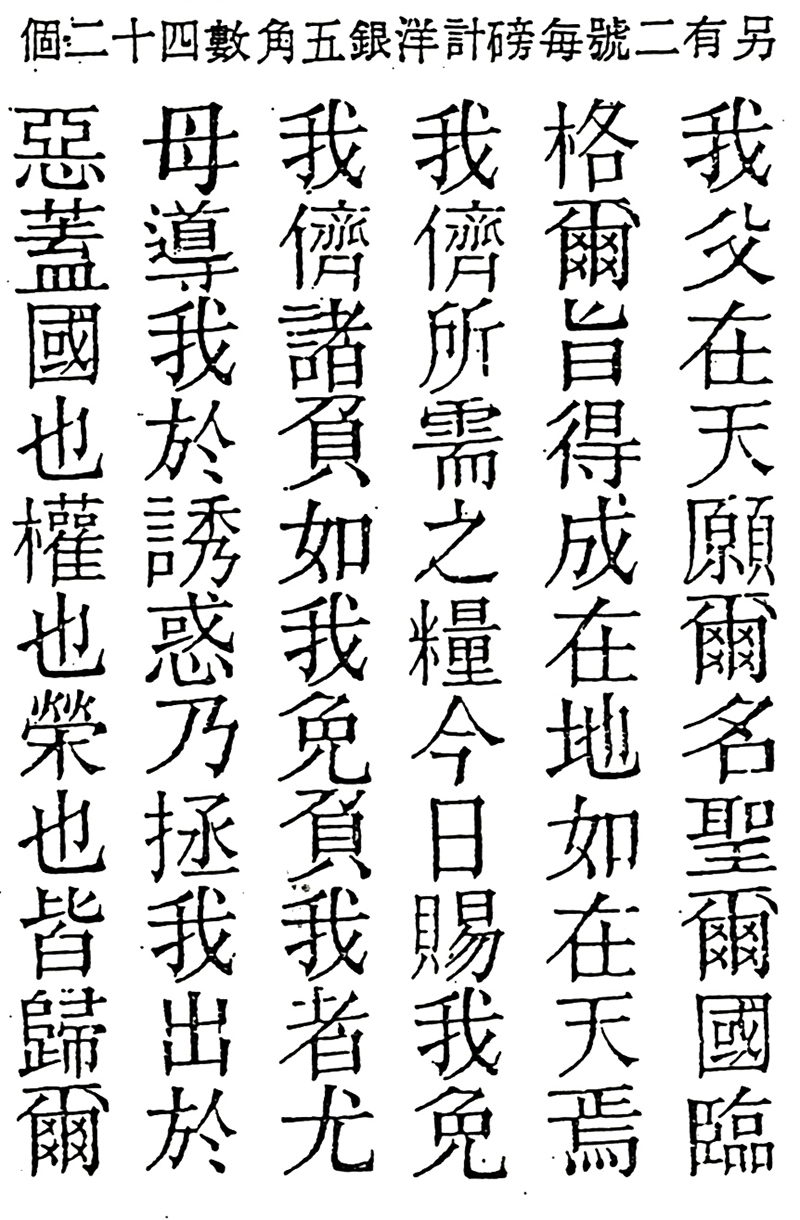 另有二號每磅計洋銀五角數四十二個
我父在天願爾名聖爾國臨
格爾旨得成在地如在天焉
我儕所需之糧今日賜我免
我儕諸負如我免負我者尤
母導我於誘惑乃拯我出於
惡蓋國也權也榮也皆歸爾